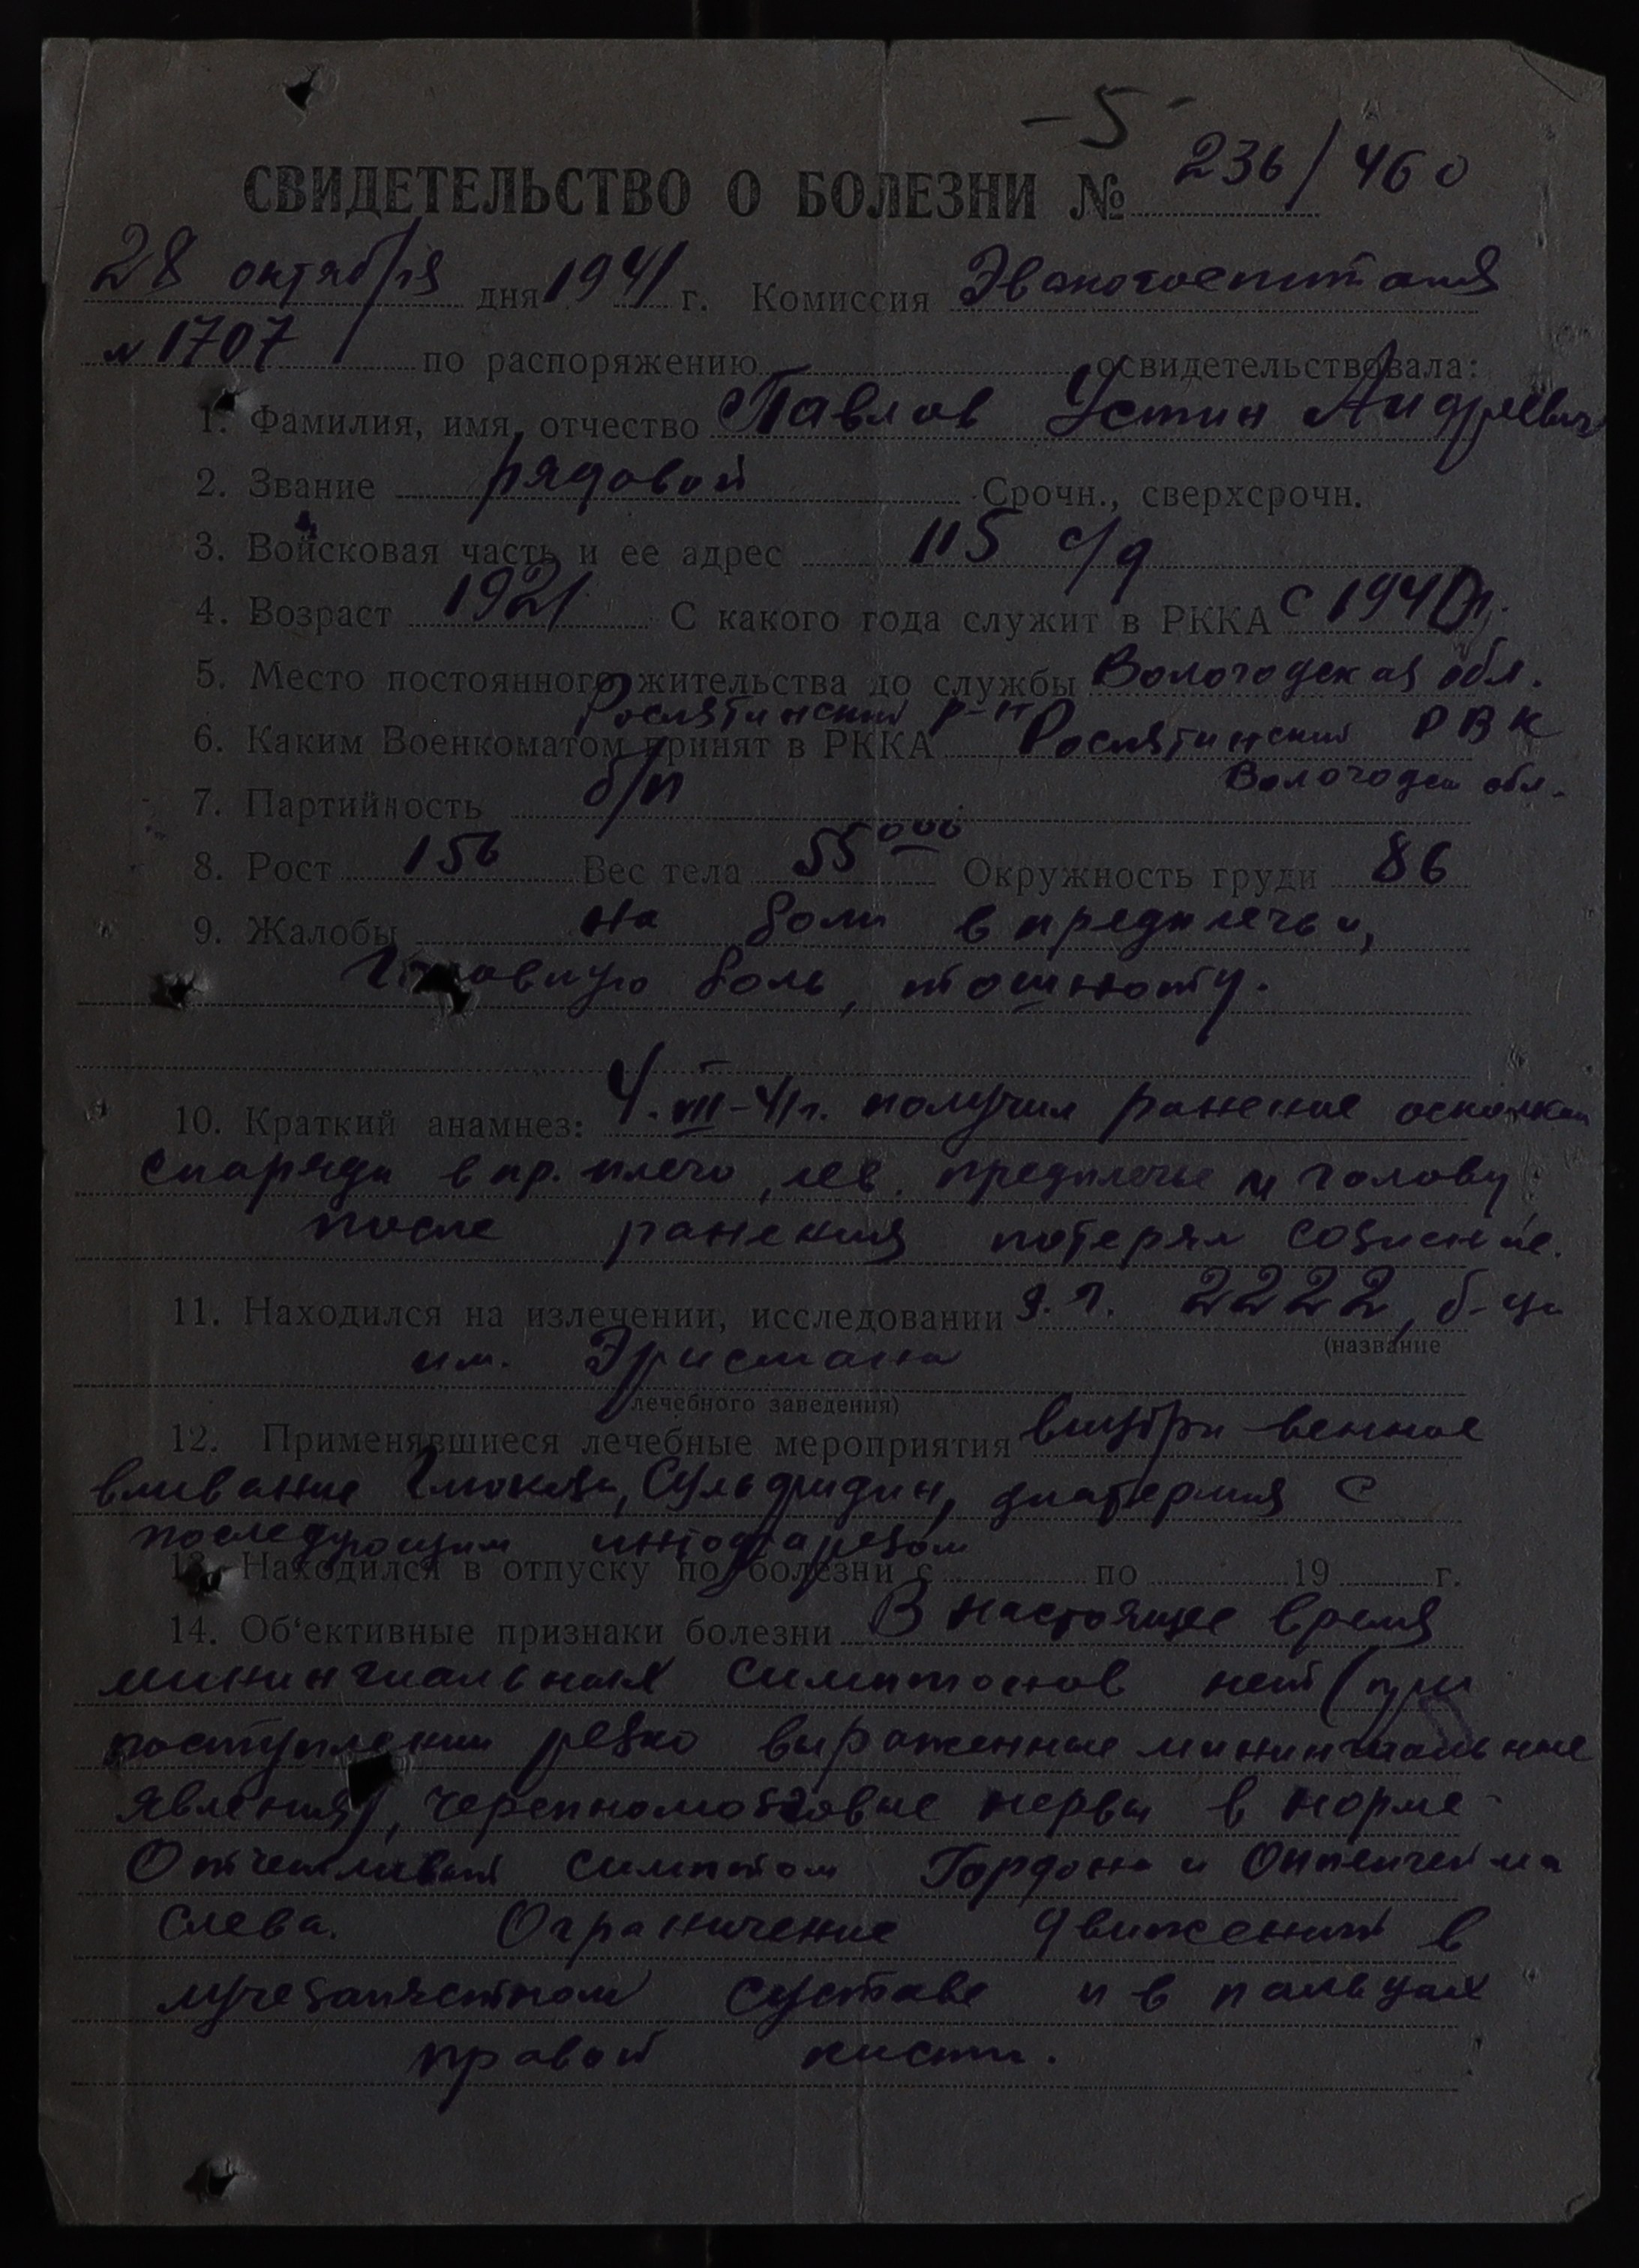 -5-
СВИДЕТЕЛЬСТВО О БОЛЕЗНИ № 236/460
28 октября дня 1941 г. Комиссия Эвакогоспиталя
№ 1707 по распоряжению освидетельствовала:
1. Фамилия, имя, отчество Павлов Устин Андреевич
2. Звание рядовой Срочн., сверхсрочн.
3. Войсковая часть и ее адрес 115 с/д
4. Возраст 1921 С какого года служит в РККА с 1940 г.
5. Место постоянного жительства до службы Вологодская обл.
Рослятинский р-н
6. Каким Военкоматом принят в РККА Рослятинский РВК
Вологодск обл.
7. Партийность б/п
8. Рост 156 Вес тела 55 000 Окружность груди 86
9. Жалобы на боли в предплечьи,
головную боль, тошноту.
10. Краткий анамнез: 4.VIII-41 г. получил ранение осколком
снаряда в пр. плечо, лев. предплечье и голову
после ранения потерял сознание.
11. Находился на излечении, исследовании э.г. 2222, б-ца
(название
им. Эрисмана
лечебного заведения)
12. Применявшиеся лечебные мероприятия внутри венное
вливание глюкозы, Сульфидин, диатермия с
последующим интофарезом
13. Находился в отпуску по болезни с по 19 г.
14. Об'ективные признаки болезни В настоящее время
минингиальных симптомов нет (при
поступлении резко выраженные минингиальные
явления), черепномозговые нервы в норме
Отчетливый симптом Гордона и Оппенгейма
слева. Ограничение движений в
лучезапястном суставе и в пальцах
правой кисти.